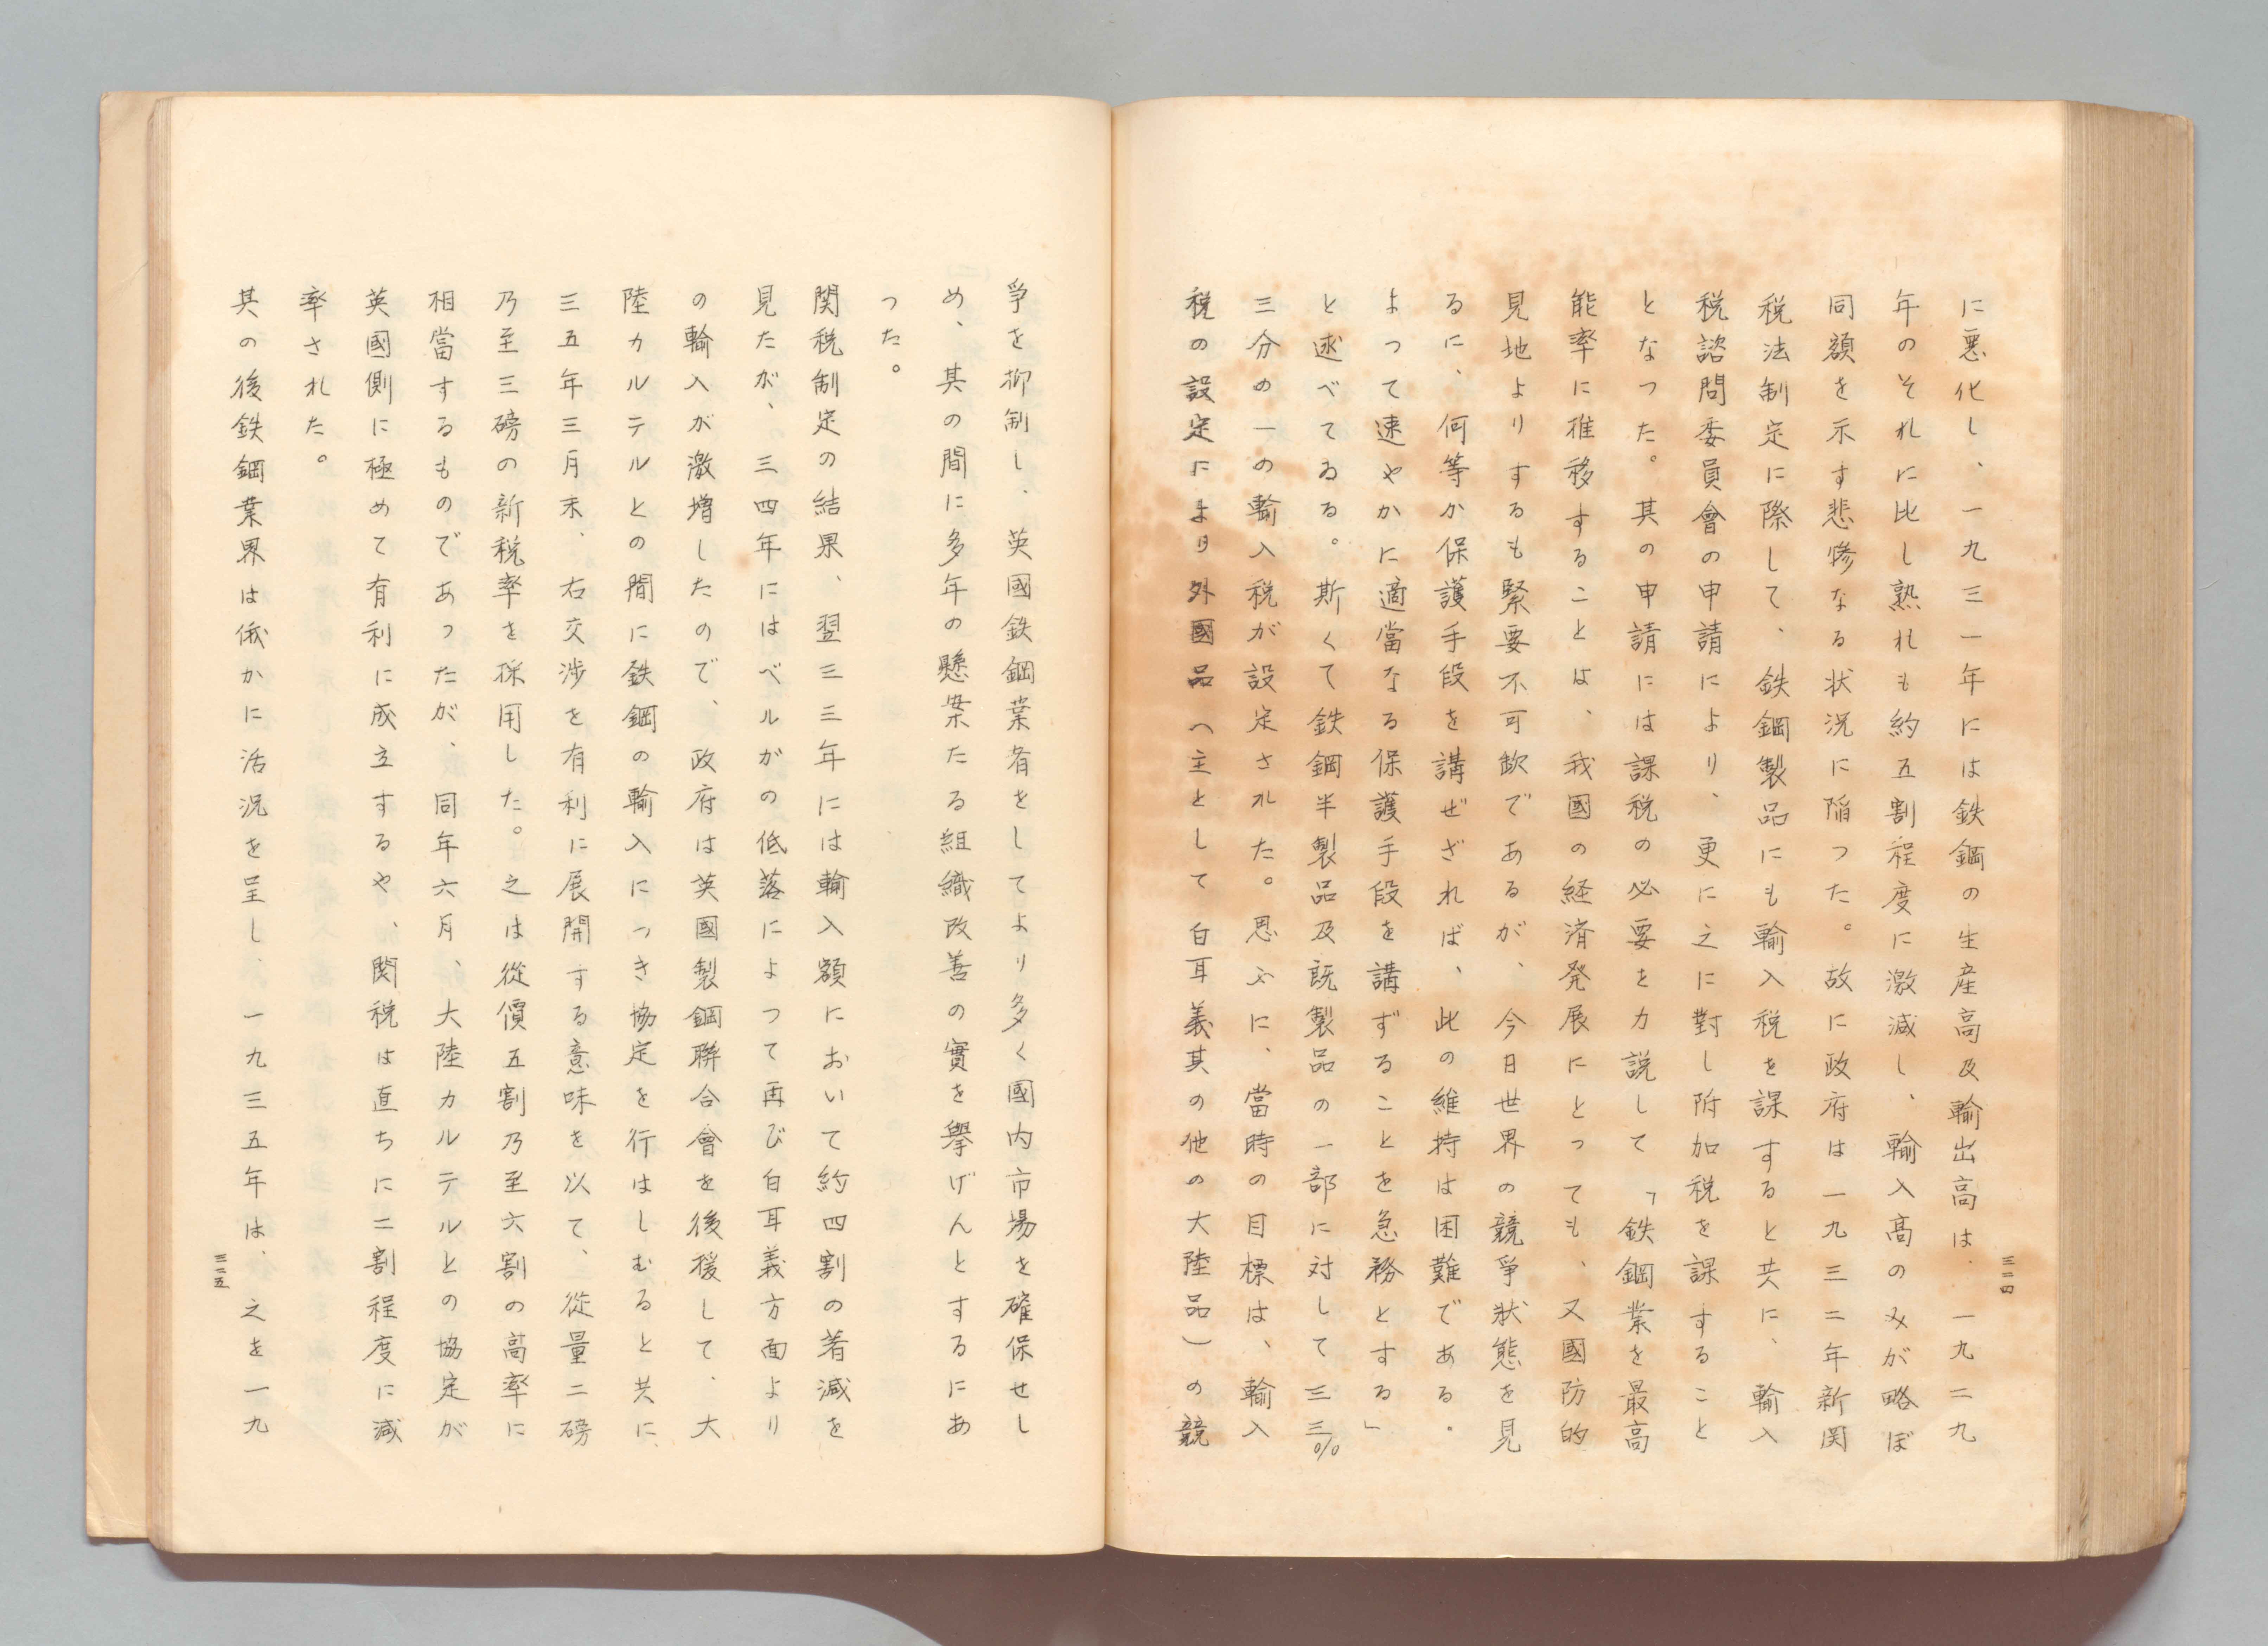 に悪化し、一九三一年には鉄鋼の生産高及輸出高は、一九二九
年のそれに比し熟れも約五割程度に激減し、輸入高のみが略ぼ
同額を示す悲惨なる状況に陥つた。故に政府は一九三二年新関
税法制定に際して、鉄鋼製品にも輸入税を課すると共に、輸入
税諮問委員會の申請により、更に之に對し附加税を課すること
となつた。其の申請には課税の必要を力説して「鉄鋼業を最高
能率に推移することは、我國の経済発展にとつても、又國防的
見地よりするも緊要不可欽であるが、今日世界の競爭狀態を見
るに、何等か保護手段を講ぜざれば、此の維持は困難である。
よつて速やかに適當なる保護手段を講ずることを急務とする」
と述べてゐる。斯くて鉄鋼半製品及既製品の一部に対して三三%
三分の一の輸入税が設定された。思ふに、當時の目標は、輸入
税の設定により外國品(主として白耳義其の他の大陸品)の競
三二四
爭を抑制し、英國鉄鋼業者をしてより多く國内市場を確保せし
め、其の間に多年の懸案たる組織改善の實を擧げんとするにあ
つた。
関税制定の結果、翌三三年には輸入額において約四割の著減を
見たが、三四年にはベルガの低落によつて再び白耳義方面より
の輸入が激増したので、政府は英國製鋼聯合會を後援して、大
陸カルテルとの間に鉄鋼の輸入につき協定を行はしむると共に、
三五年三月末、右交渉を有利に展開する意味を以て、從量二磅
乃至三磅の新税率を採用した。之は從價五割乃至六割の高率に
相當するものであつたが、同年六月、大陸カルテルとの協定が
英國側に極めて有利に成立するや、関税は直ちに二割程度に減
率された。
其の後鉄鋼業界は俄かに活況を呈し、一九三五年は、之を一九
三二五